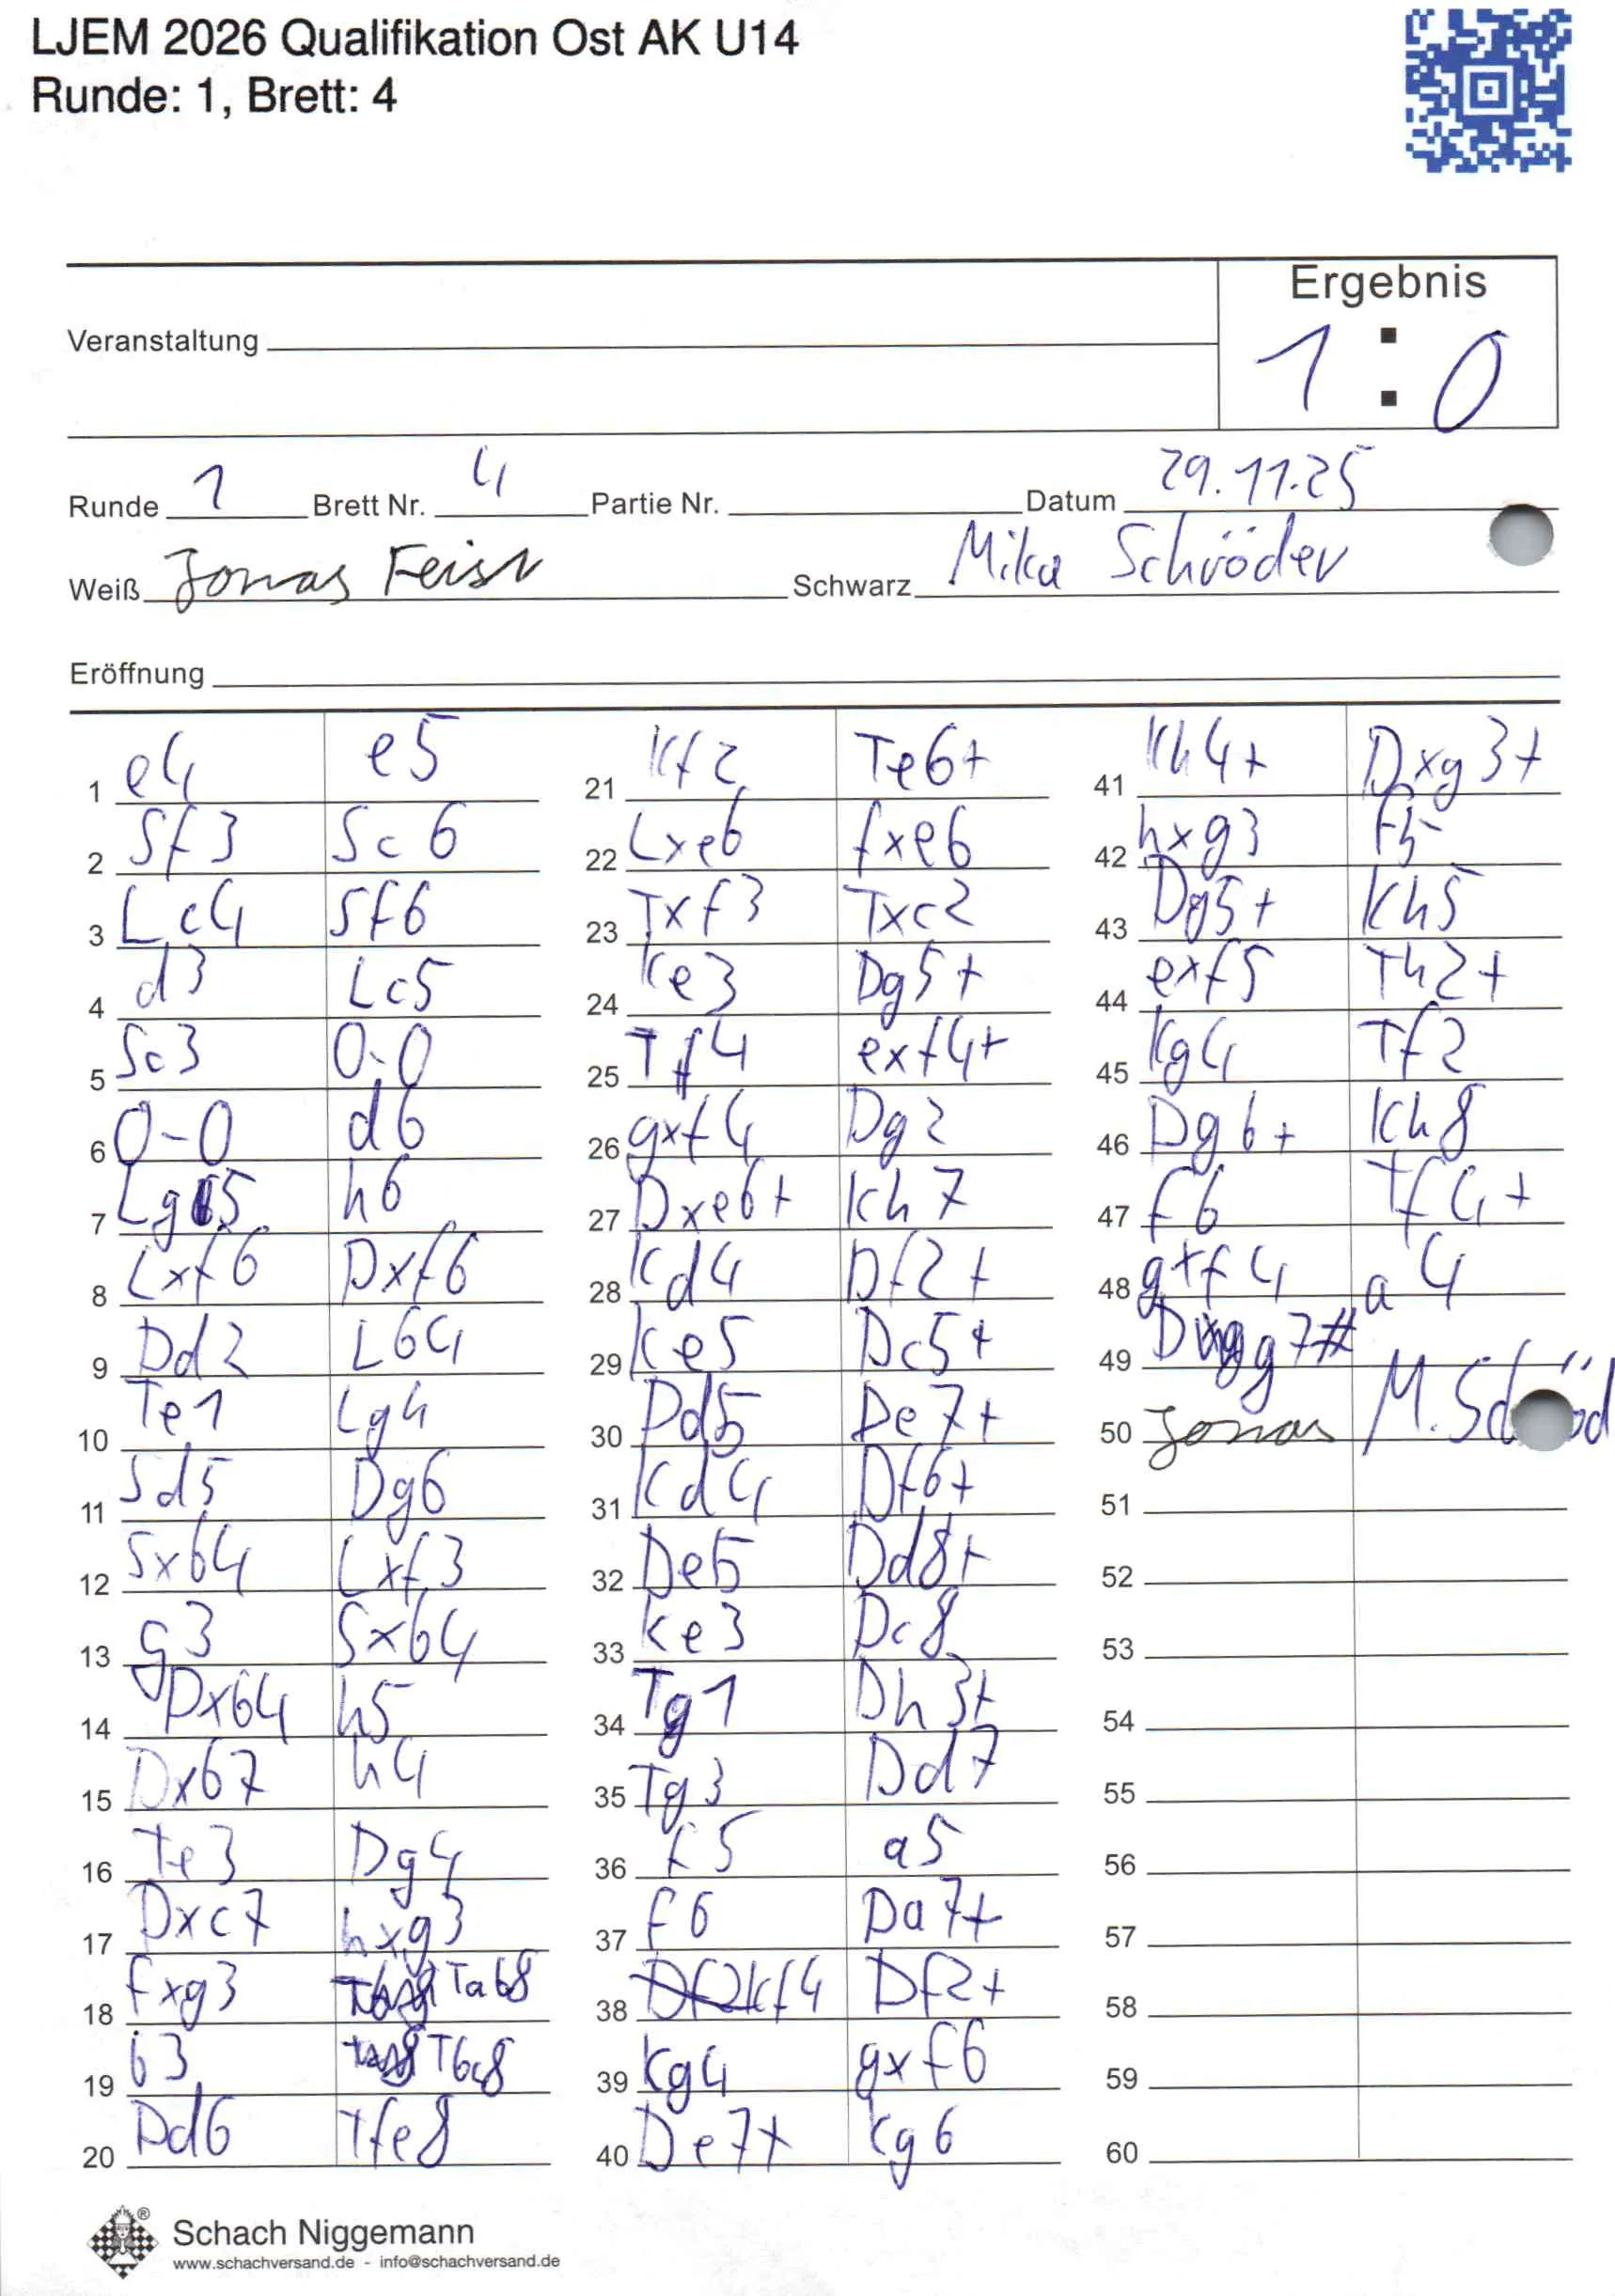 LJEM 2026 Qualifikation Ost AK U14
Runde: 1, Brett: 4
Ergebnis
Veranstaltung
1 : 0
Runde 1 Brett Nr. 4 Partie Nr. Datum 29.11.25
Weiß Jonas Feist Schwarz Mika Schröder
Eröffnung
1 e4 e5
2 Sf3 Sc6
3 Lc4 Sf6
4 d3 Lc5
5 Sc3 0-0
6 0-0 d6
7 Lg5 h6
8 Lxf6 Dxf6
9 Dd2 Lb4
10 Te1 Lg4
11 Sd5 Dg6
12 Sxb4 Lxf3
13 g3 Sxb4
14 Dxb4 h5
15 Dxb7 h4
16 Te3 Dg4
17 Dxc7 hxg3
18 fxg3 Tab8
19 b3 Tbc8
20 Dd6 Tfe8
21 Kf2 Te6+
22 Lxe6 fxe6
23 Txf3 Txc2
24 Ke3 Dg5+
25 Tf4 exf4+
26 gxf4 Dg2
27 Dxe6+ Kh7
28 Kd4 Df2+
29 Ke5 Dc5+
30 Dd5 De7+
31 Kd4 Df6+
32 De5 Dd8+
33 Ke3 Dc8
34 Tg1 Dh3+
35 Tg3 Dd7
36 f5 a5
37 f6 Da7+
38 Kf4 Df2+
39 Kg4 gxf6
40 De7+ Kg6
41 Kh4+ Dxg3+
42 hxg3 f5
43 Dg5+ Kh5
44 exf5 Th2+
45 Kg4 Tf2
46 Dg6+ Kh8
47 f6 Tf4+
48 gxf4 a4
49 Dg7#
50 Jonas M. Schröd
51
52
53
54
55
56
57
58
59
60
Schach Niggemann
www.schachversand.de - info@schachversand.de